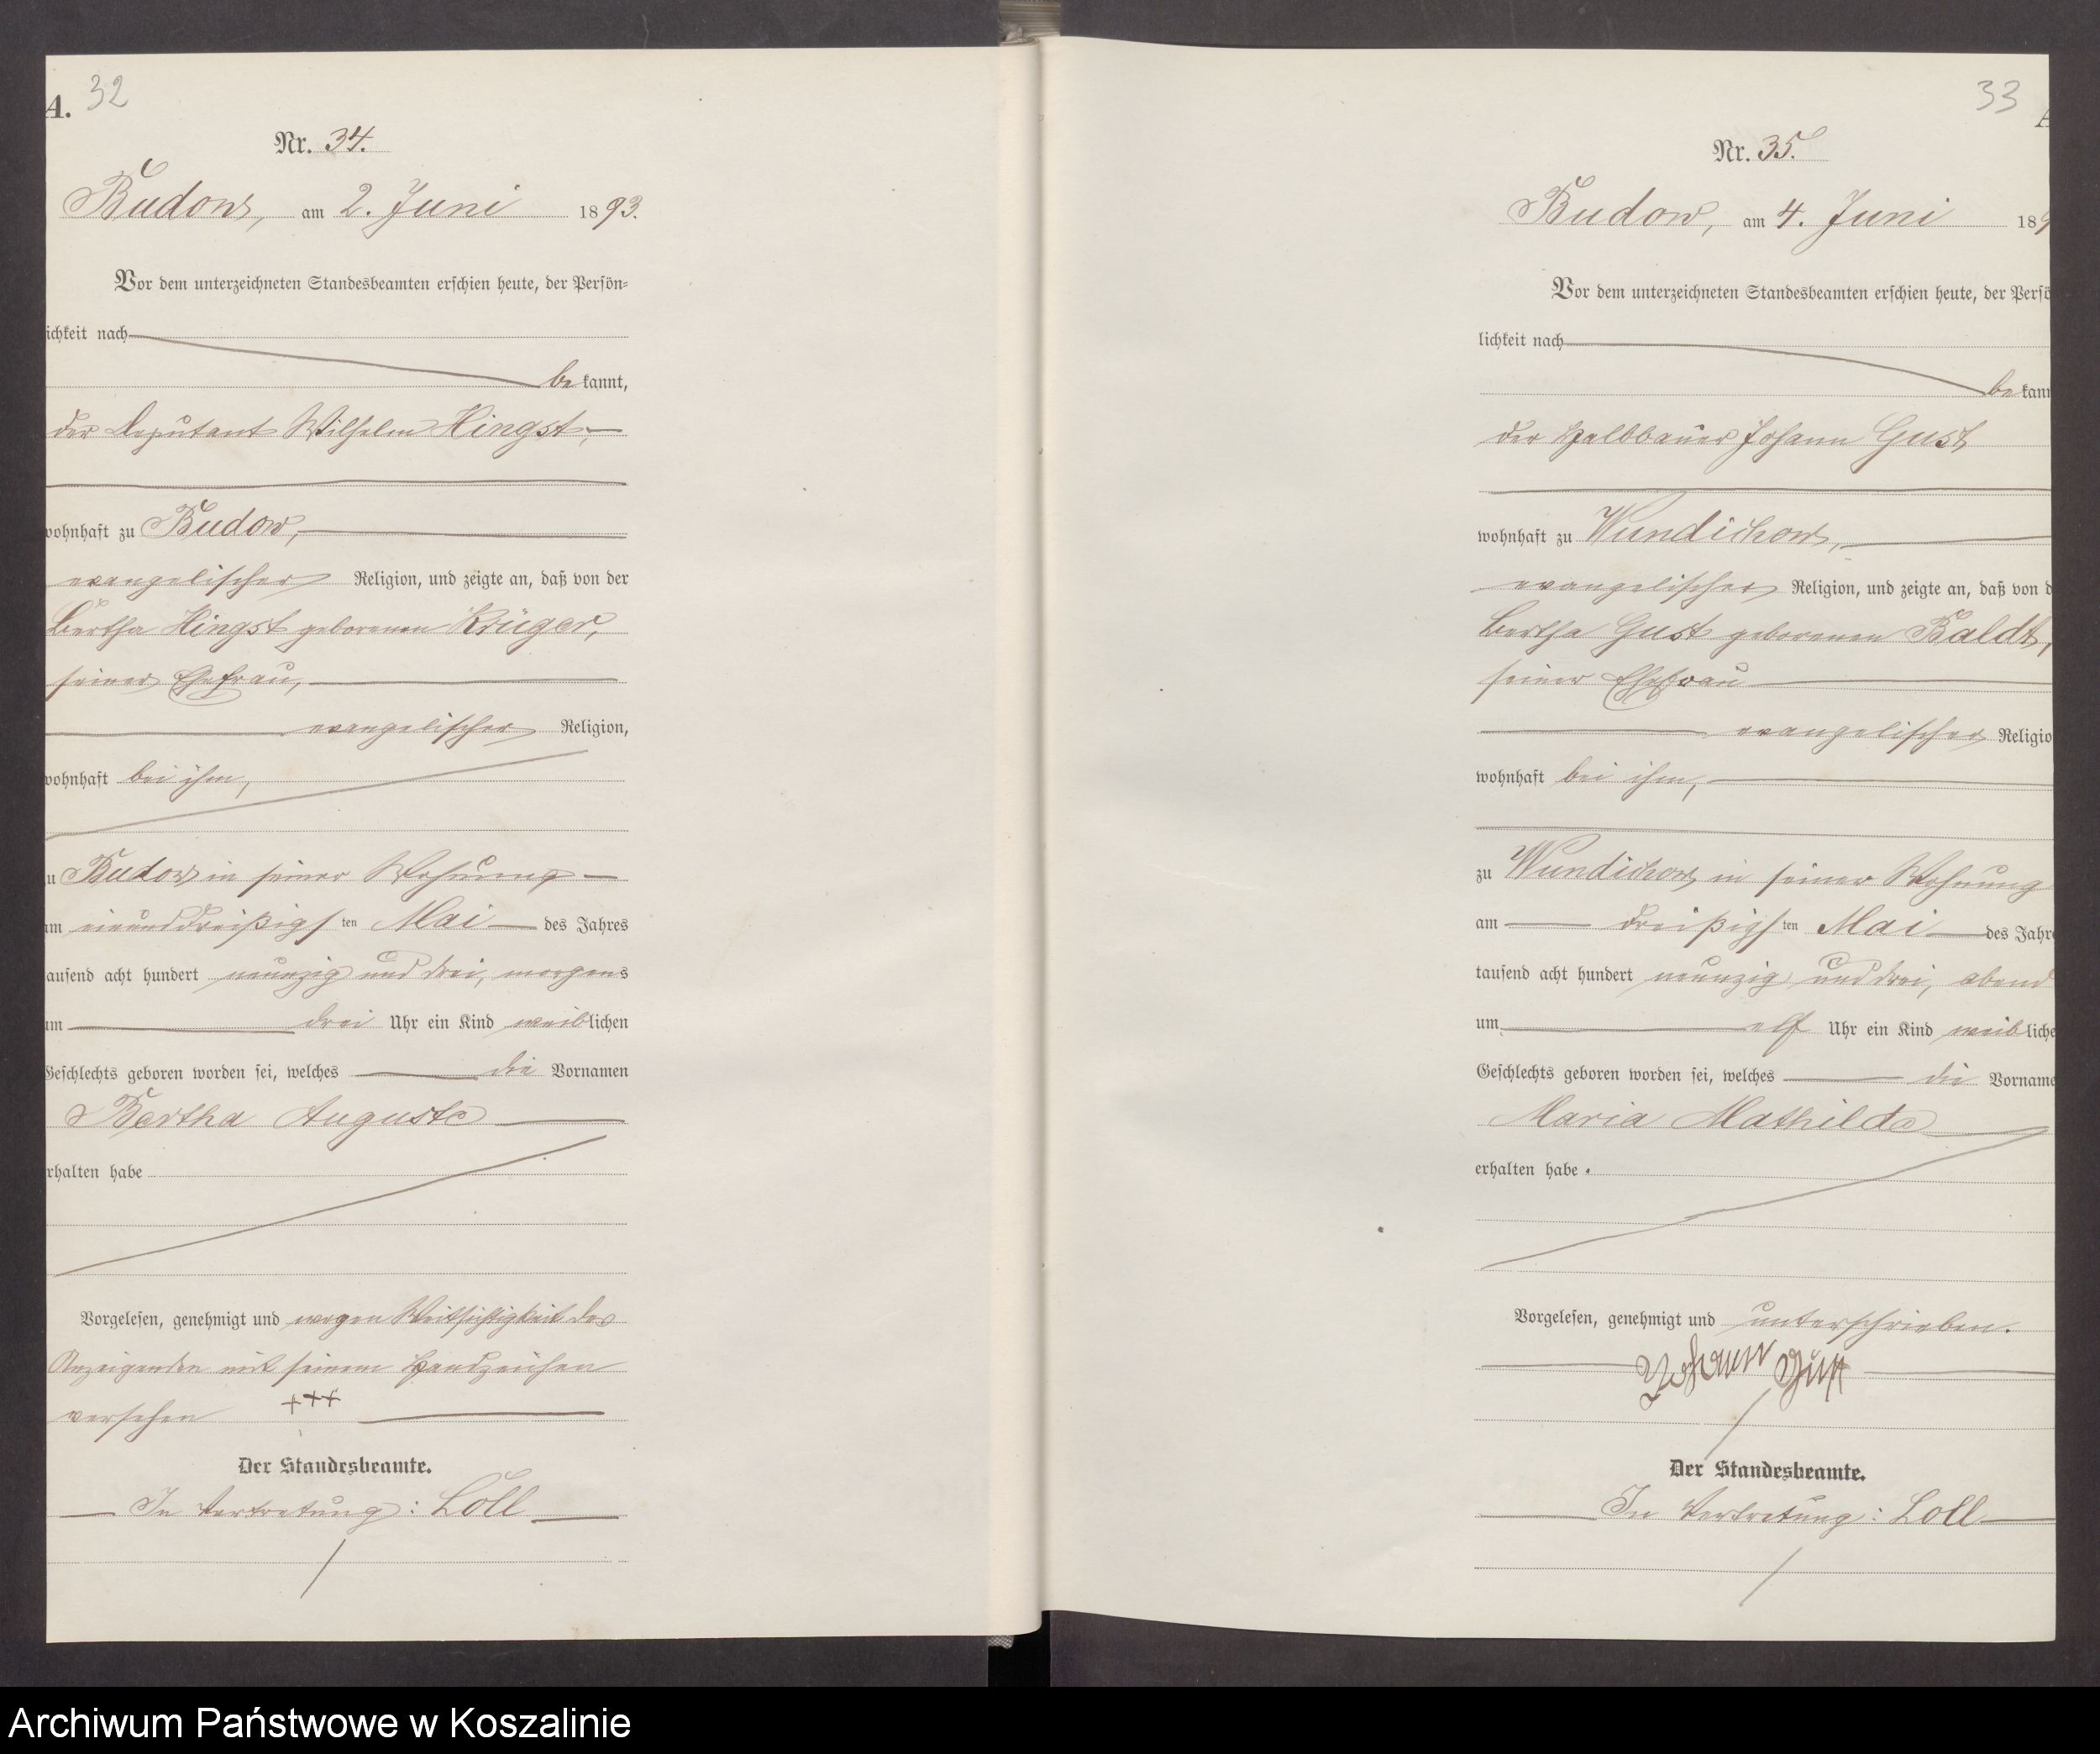 A. 32
Nr. 34.
Budow, am 2. Juni 1893.
Vor dem unterzeichneten Standesbeamten erschien heute, der Persön-
lichkeit nach
bekannt,
der Deputant Wilhelm Hingst,
wohnhaft zu Budow,
evangelischer Religion, und zeigte an, daß von der
Bertha Hingst geborenen Krüger,
seiner Ehefrau,
evangelischer Religion,
wohnhaft bei ihm,
zu Budow in seiner Wohnung
am einunddreißigsten Mai des Jahres
tausend acht hundert neunzig und drei, morgens
um drei Uhr ein Kind weiblichen
Geschlechts geboren worden sei, welches die Vornamen
Bertha Auguste
erhalten habe
Vorgelesen, genehmigt und wegen Weitsichtigkeit des
Anzeigenden mit seinem Handzeichen
versehen +++
Der Standesbeamte.
In Vertretung: Loll
33
Nr. 35.
Budow, am 4. Juni 189
Vor dem unterzeichneten Standesbeamten erschien heute, der Persö
lichkeit nach
bekann
der Halbbauer Johann Gust
wohnhaft zu Wundichow,
evangelischer Religion, und zeigte an, daß von d
Bertha Gust geborenen Baldt,
seiner Ehefrau
evangelischer Religio
wohnhaft bei ihm,
zu Wundichow in seiner Wohnung
am dreißigsten Mai des Jahre
tausend acht hundert neunzig und drei, abend
um elf Uhr ein Kind weibliche
Geschlechts geboren worden sei, welches die Vorname
Maria Mathilde
erhalten habe.
Vorgelesen, genehmigt und unterschrieben.
Johann Gust
Der Standesbeamte.
In Vertretung: Loll
Archiwum Państwowe w Koszalinie